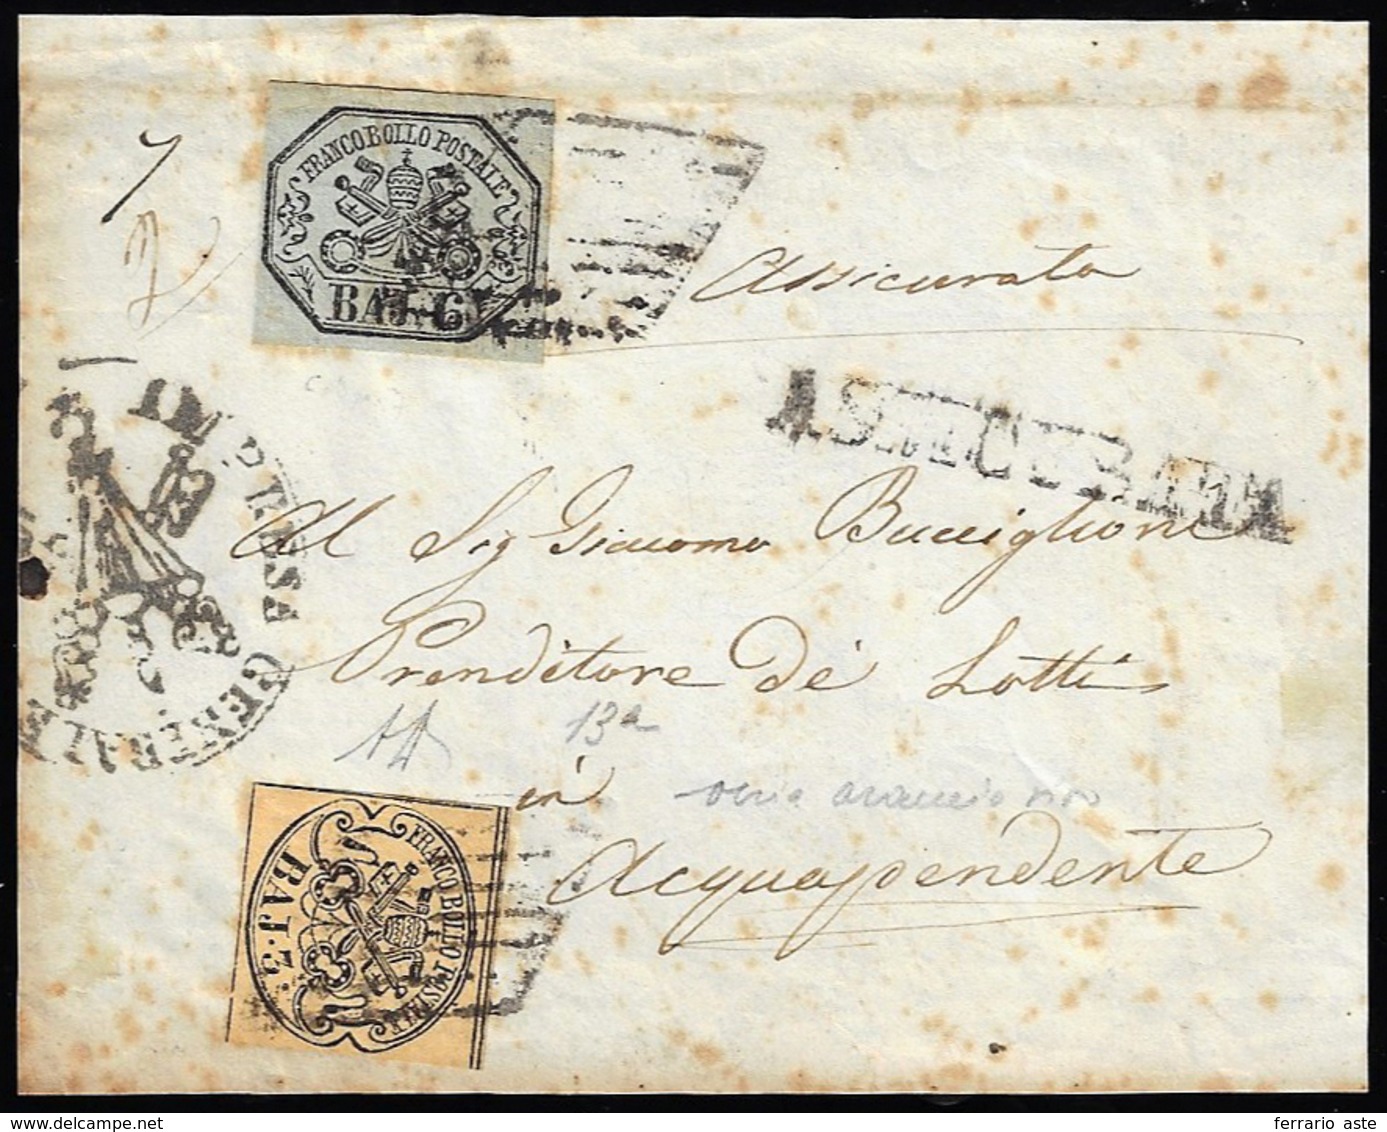 7
2
FRANCO BOLLO POSTALE
BAJ. 6
Assicurata
ASSICURATA
IMPRESA GENERALE
Al Sig Giacomo Bucciglioni
Prenditore de Lotti
13a
in
ocria arancio
Acquapendente
FRANCO BOLLO POSTALE
BAJ. 3
ferrario aste